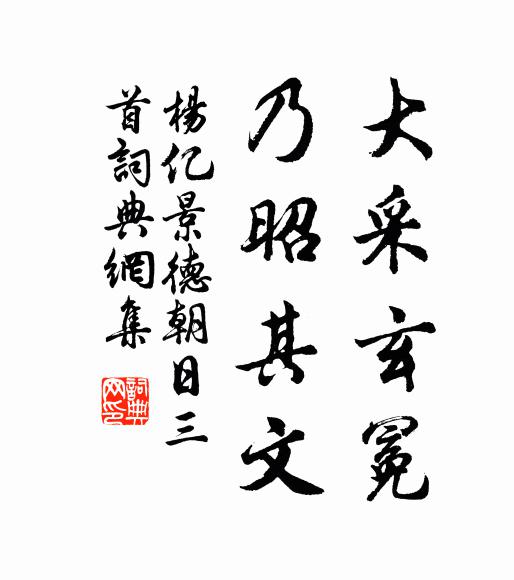 大采玄冕
乃昭其文
楊亿景德朝日三
首詞典網集
詞典
网印